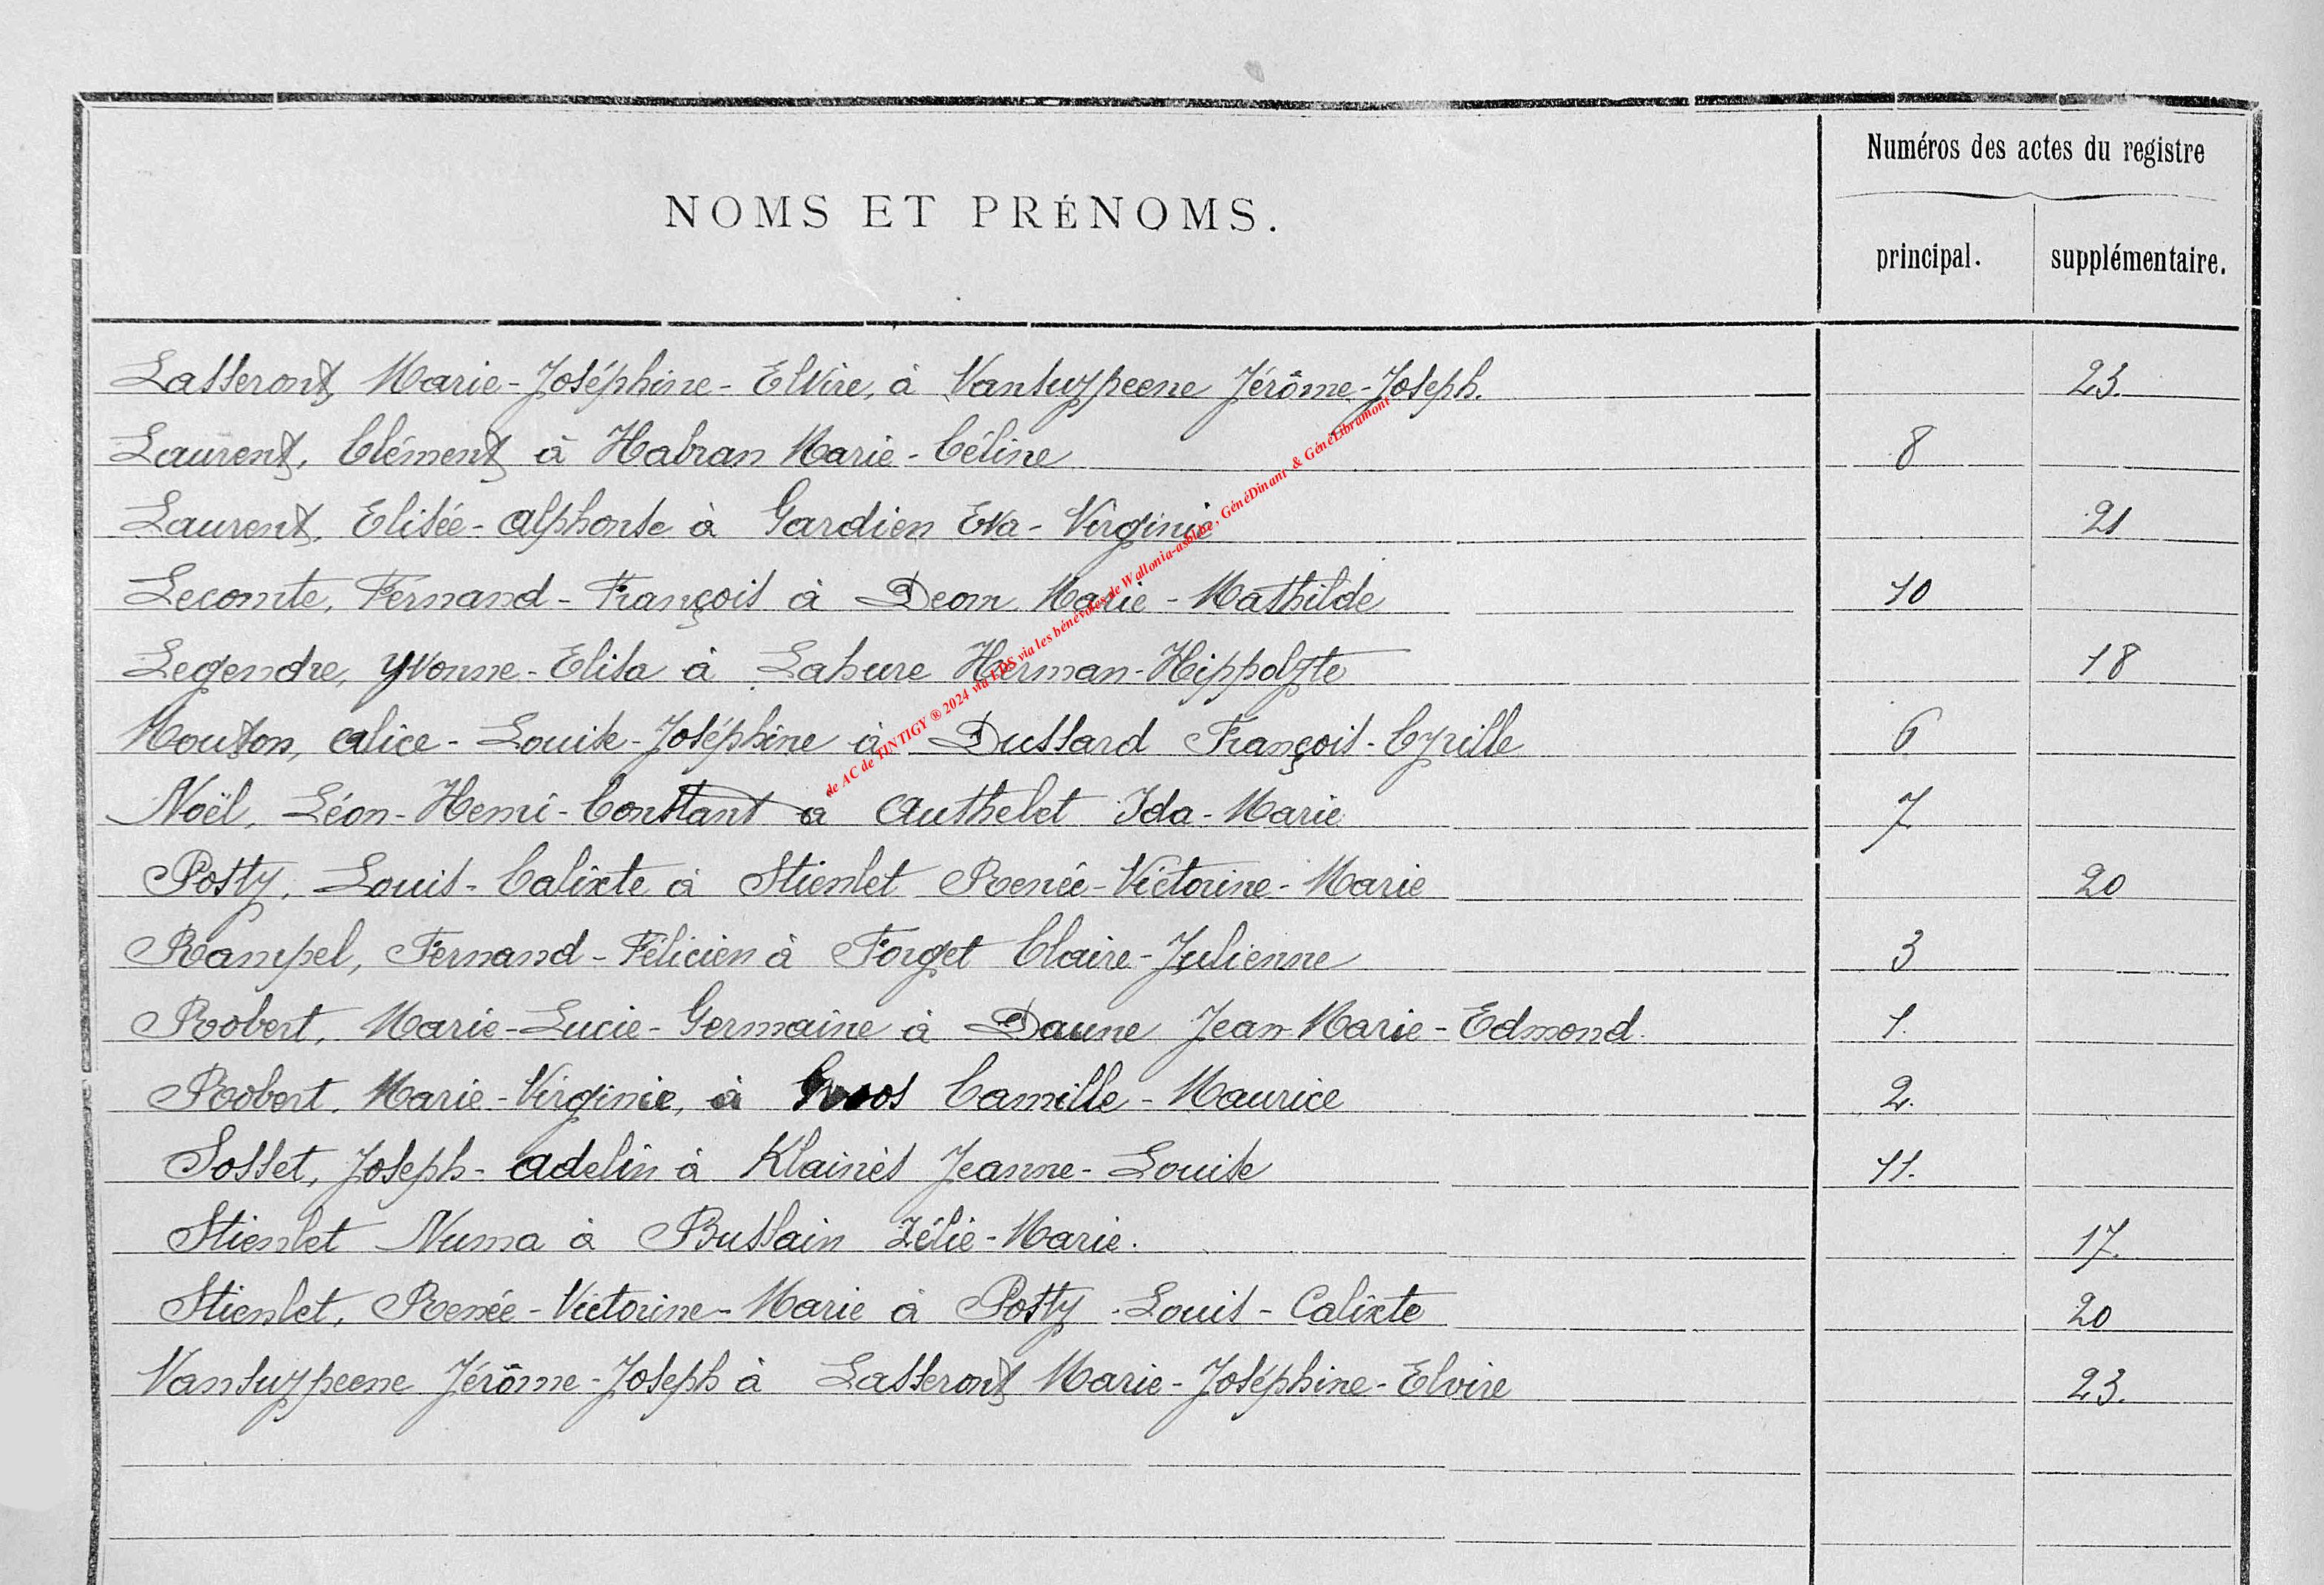 Numéros des actes du registre
NOMS ET PRÉNOMS.
principal. supplémentaire.
Lasseront, Marie-Joséphine-Elvire, à Vansuypeene Jérôme-Joseph. 23.
Laurent, Clément à Habran Marie-Céline 8
Laurent, Elisée-Alphonse à Gardien Eva-Virginie 21
Lecomte, Fernand-François à Deom Marie-Mathilde 10
Legendre, Yvonne-Elisa à Lahure Herman-Hippolyte 18
Mouton, Alice-Louise-Joséphine à Dussard François-Cyrille 6
Noël, Léon-Henri-Constant à Authelet Ida-Marie 7
Posty, Louis-Calixte à Stienlet Renée-Victorine-Marie 20
Rampel, Fernand-Félicien à Forget Claire-Julienne 3
Robert, Marie-Lucie-Germaine à Daune Jean-Marie-Edmond. 1.
Robert, Marie-Virginie, à Camille-Maurice 2.
Sosset, Joseph-Adelin à Klainès Jeanne-Louise 11.
Stienlet Numa à Bussain Zélie-Marie. 17.
Stienlet, Renée-Victorine-Marie à Posty Louis-Calixte 20
Vansuypeene Jérôme-Joseph à Lasseront Marie-Joséphine-Elvire 23.
de AC de TINTIGY ® 2024 via EDS via les bénévoles de Wallonia-asbl.be, GénéDinant & GénéLibramont